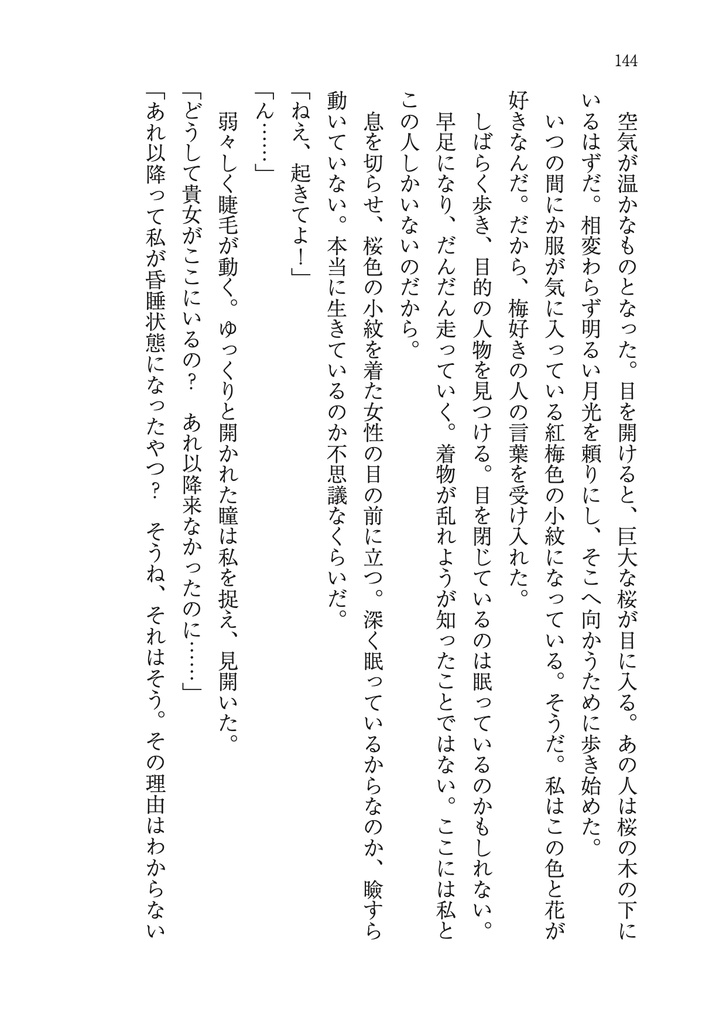 144
　空気が温かなものとなった。目を開けると、巨大な桜が目に入る。あの人は桜の木の下に
いるはずだ。相変わらず明るい月光を頼りにし、そこへ向かうために歩き始めた。
　いつの間にか服が気に入っている紅梅色の小紋になっている。そうだ。私はこの色と花が
好きなんだ。だから、梅好きの人の言葉を受け入れた。
　しばらく歩き、目的の人物を見つける。目を閉じているのは眠っているのかもしれない。
　早足になり、だんだん走っていく。着物が乱れようが知ったことではない。ここには私と
この人しかいないのだから。
　息を切らせ、桜色の小紋を着た女性の目の前に立つ。深く眠っているからなのか、瞼すら
動いていない。本当に生きているのか不思議なくらいだ。
「ねえ、起きてよ！」
「ん……」
　弱々しく睫毛が動く。ゆっくりと開かれた瞳は私を捉え、見開いた。
「どうして貴女がここにいるの？　あれ以降来なかったのに……」
「あれ以降って私が昏睡状態になったやつ？　そうね、それはそう。その理由はわからない